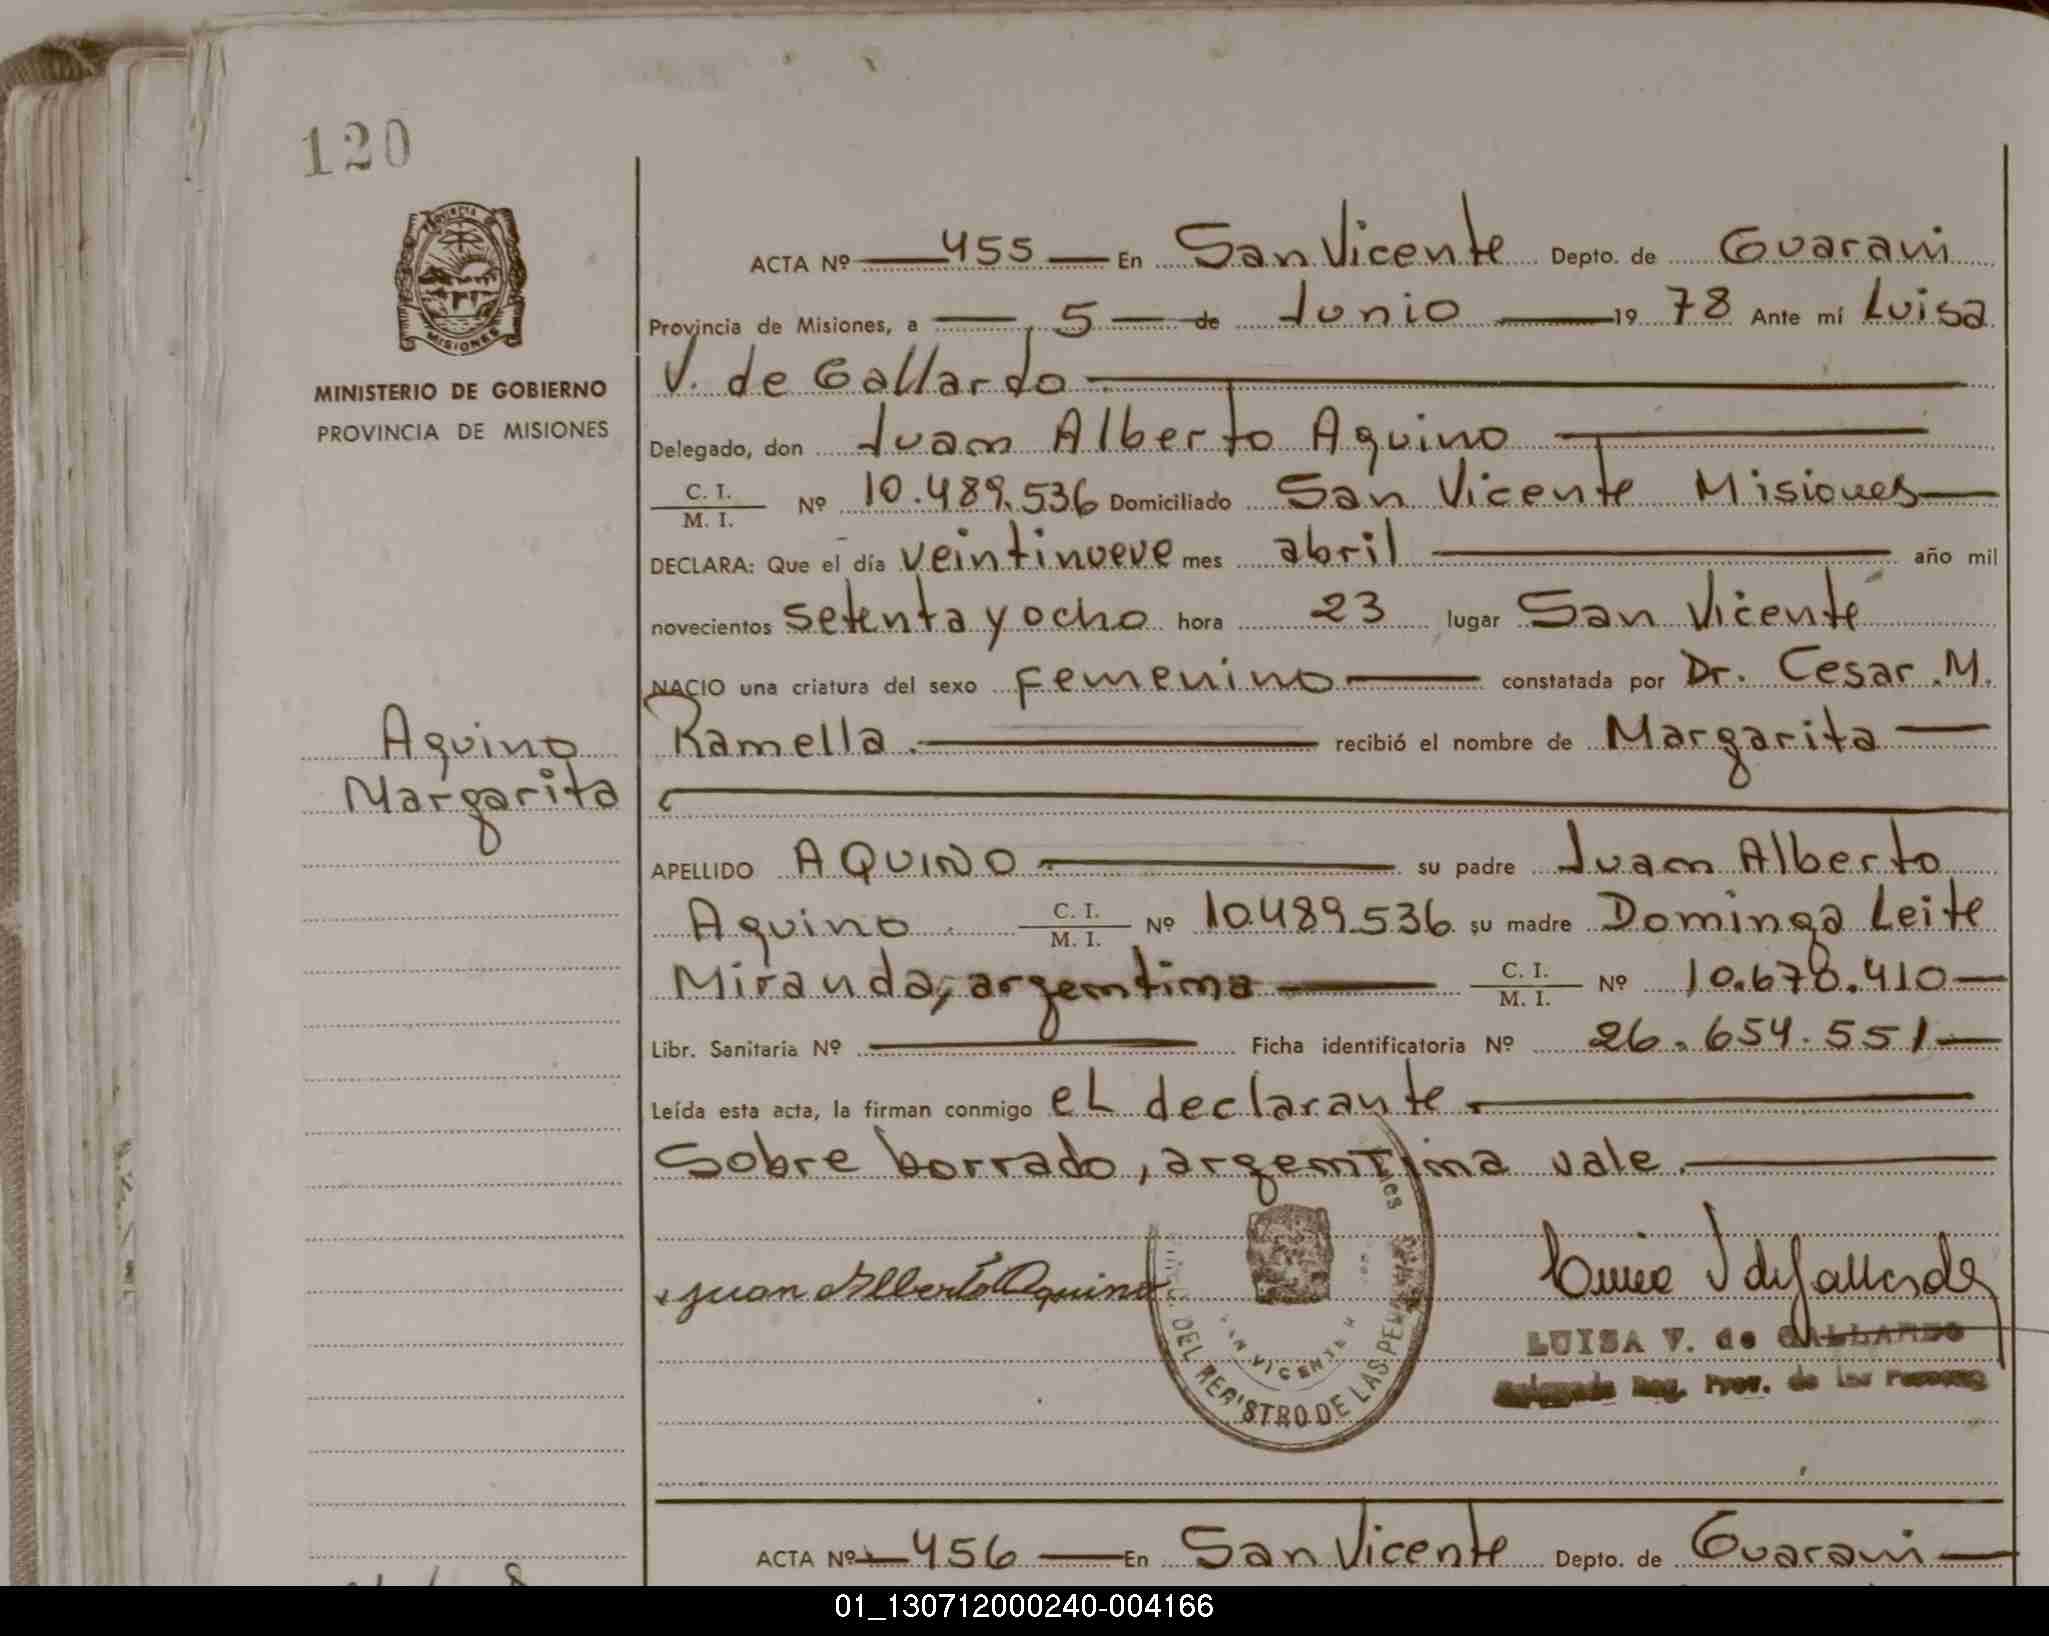 120
MINISTERIO DE GOBIERNO
PROVINCIA DE MISIONES
Aquino
Margarita
ACTA Nº 455 En San Vicente Depto. de Guarani
Provincia de Misiones, a 5 de Junio 19 78 Ante mí Luisa
V. de Gallardo
Delegado, don Juan Alberto Aquino
C. I. / M. I. Nº 10.489.536 Domiciliado San Vicente Misiones
DECLARA: Que el día veintinueve mes abril año mil
novecientos setenta y ocho hora 23 lugar San Vicente
NACIO una criatura del sexo femenino constatada por Dr. Cesar M.
Ramella. recibió el nombre de Margarita
APELLIDO AQUINO su padre Juan Alberto
Aquino C. I. / M. I. Nº 10.489.536 su madre Dominga Leite
Miranda, argentina C. I. / M. I. Nº 10.678.410
Libr. Sanitaria Nº Ficha identificatoria Nº 26.654.551
Leída esta acta, la firman conmigo el declarante
Sobre borrado, argentina vale
Juan Alberto Aquino
DEL REGISTRO DE LAS PER
SAN VICENTE M
Luisa V de Gallardo
LUISA V. de GALLARDO
Reg. Prov. de las Personas
ACTA Nº 456 En San Vicente Depto. de Guarani
01_130712000240-004166